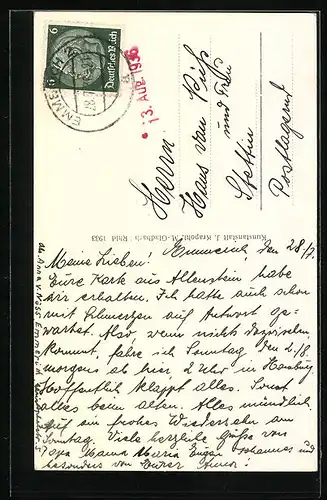 6
6
Deutsches Reich
EMMERICH
28.7.
13. AUG. 1936
Herrn
Hans van Niess
und Frau
Stettin
Postlagernd
Kunstanstalt J. Krapohl, M.-Gladbach Rhld 1933
Emmerich, den 28/7.
Meine Lieben!
Eure Karte aus Allenstein habe
wir erhalten. Ich hatte auch schon
mit Schmerzen auf Antwort ge-
wartet. Also, wenn nichts dazwischen
kommt, fahre ich Sonntag den 2./8.
morgens ab hier, 2 Uhr in Hamburg
Hoffentlich klappt alles. Sonst
alles beim alten. Alles mündlich.
Auf ein frohes Wiedersehn am
Sonntag. Viele herzliche Grüße von
Papa Mama Maria Eugen Johannes und
besonders von Eurer Anna!